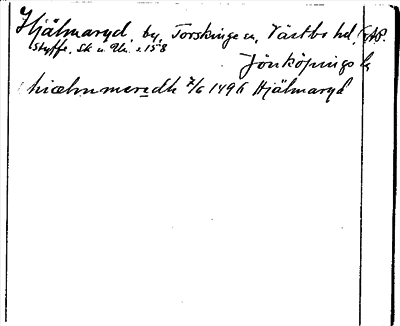 Hjälmaryd, by, Torskinge sn, Västbo hd, AP.
Styffe, Sk. u. Un. s 158
Jönköpings l.
hiælmmeredh 7/6 1496 Hjälmaryd